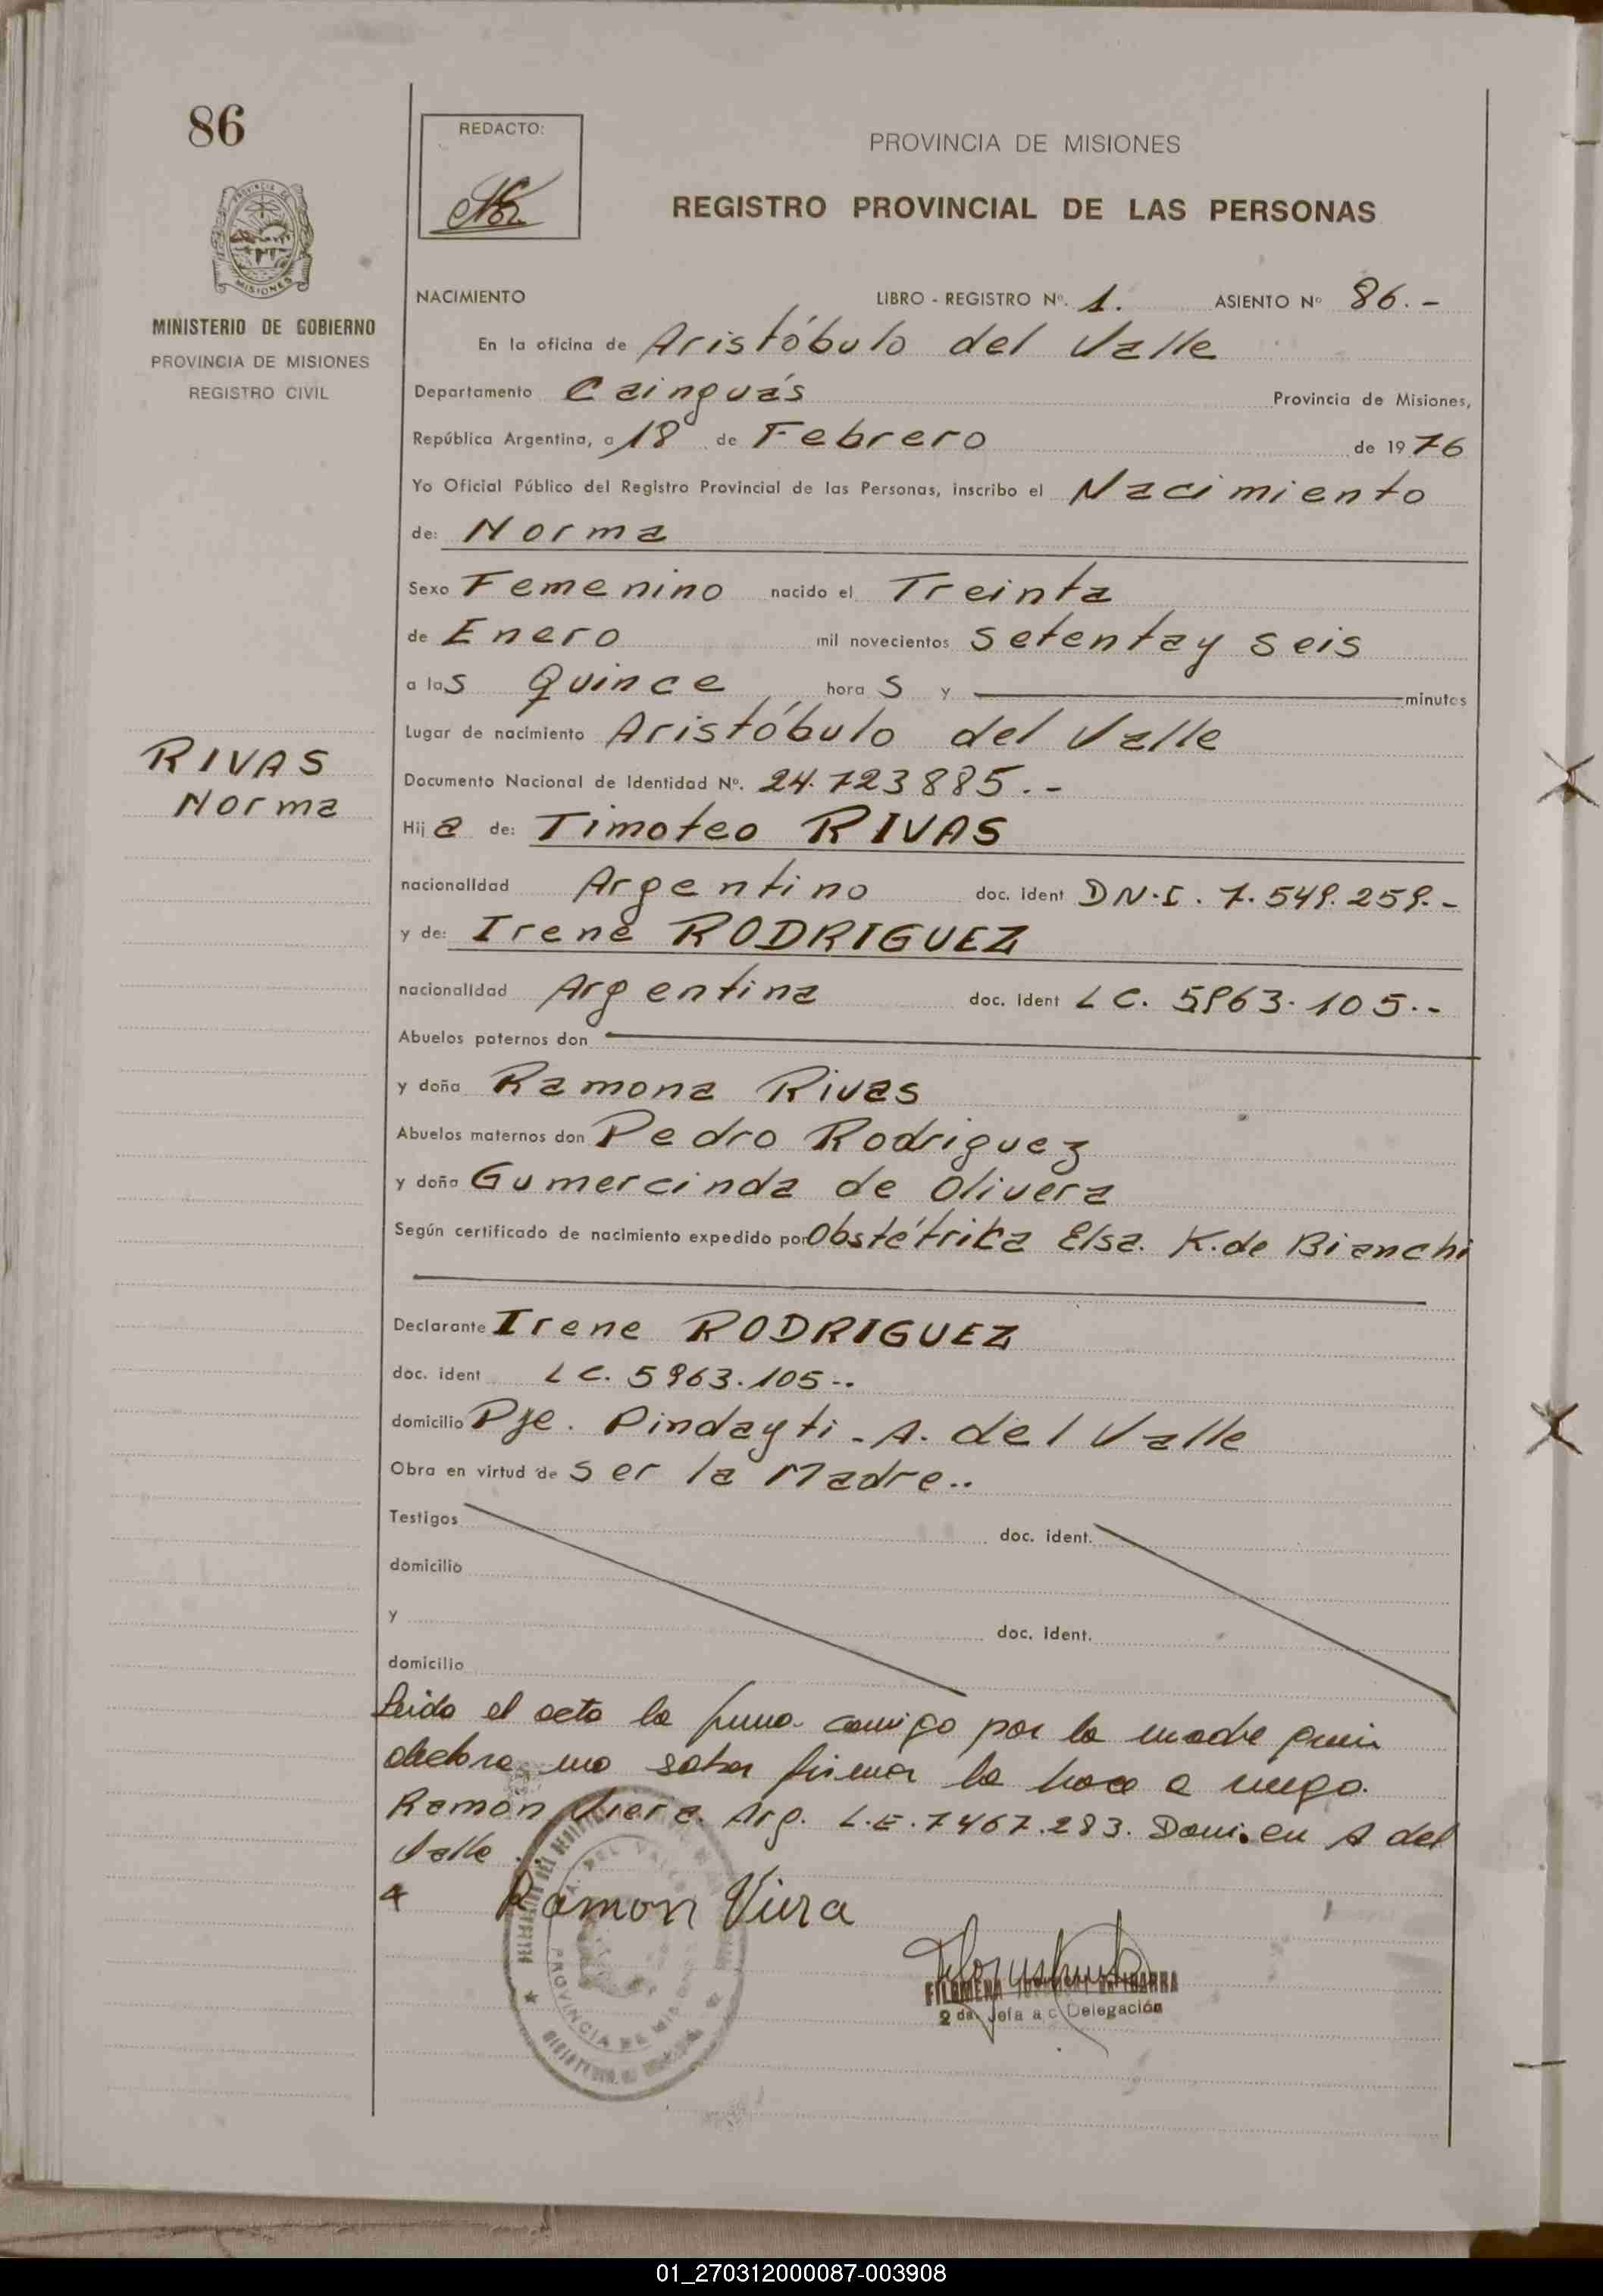 86
REDACTO:
PROVINCIA DE MISIONES
REGISTRO PROVINCIAL DE LAS PERSONAS
PROVINCIA DE
MISIONES
MINISTERIO DE GOBIERNO
PROVINCIA DE MISIONES
REGISTRO CIVIL
NACIMIENTO LIBRO - REGISTRO Nº. 1. ASIENTO Nº 86.-
En la oficina de Aristóbulo del Valle
Departamento Cainguás Provincia de Misiones,
República Argentina, a 18 de Febrero de 1976
Yo Oficial Público del Registro Provincial de las Personas, inscribo el Nacimiento
de: Norma
Sexo Femenino nacido el Treinta
de Enero mil novecientos setenta y seis
a las Quince horas y minutos
Lugar de nacimiento Aristóbulo del Valle
RIVAS
Norma
Documento Nacional de Identidad Nº. 24.723885.-
Hija de: Timoteo RIVAS
nacionalidad Argentino doc. ident DN.I. 7.549.259.-
y de: Irene RODRIGUEZ
nacionalidad Argentina doc. Ident LC. 5963.105.-
Abuelos paternos don
y doña Ramona Rivas
Abuelos maternos don Pedro Rodriguez
y doña Gumercinda de Olivera
Según certificado de nacimiento expedido por Obstétrika Elsa. K. de Bianchi
Declarante Irene RODRIGUEZ
doc. ident LC. 5963.105..
domicilio Pje. Pindayti - A. del Valle
Obra en virtud de ser la Madre..
Testigos doc. ident.
domicilio
y doc. ident.
domicilio
Leido el acta la firma conmigo por la madre quien
declara no saber firmar lo hace a ruego.
Ramón Viera. Arg. L.E. 7467.283. Domi. en A del
Valle.
Ramon Viera
A. DEL VALLE
PROVINCIA DE MISIONES
FILOMENA DE IBARRA
2 da. Jefa a c Delegación
01_270312000087-003908